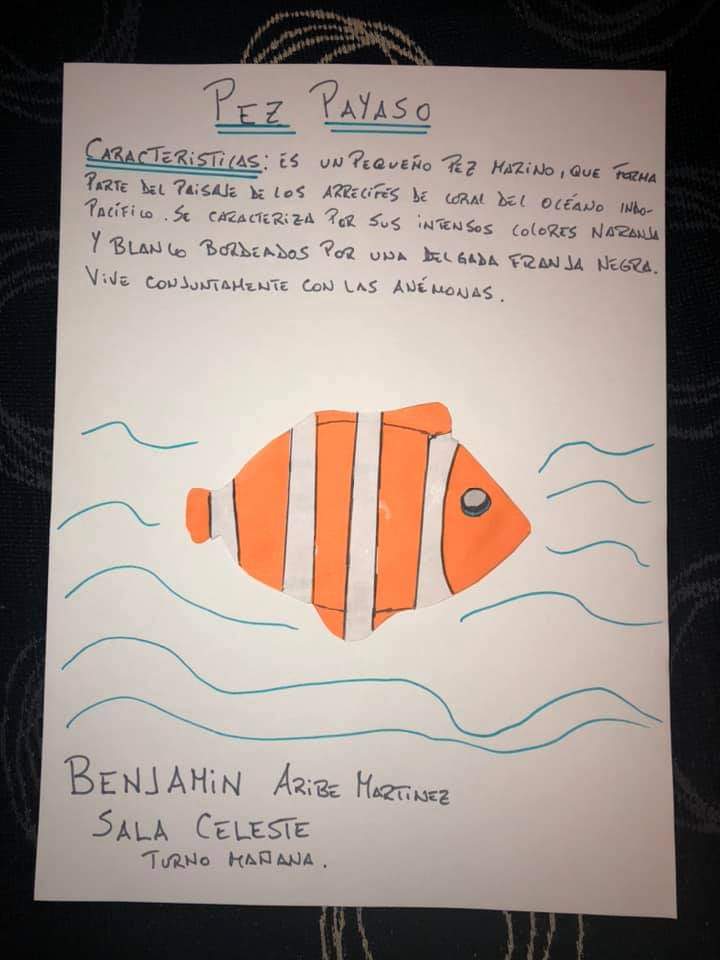 PEZ PAYASO
CARACTERISTICAS: ES UN PEQUEÑO PEZ MARINO, QUE FORMA
PARTE DEL PAISAJE DE LOS ARRECIFES DE CORAL DEL OCÉANO INDO-
PACÍFICO. SE CARACTERIZA POR SUS INTENSOS COLORES NARANJA
Y BLANCO BORDEADOS POR UNA DELGADA FRANJA NEGRA.
VIVE CONJUNTAMENTE CON LAS ANÉMONAS.
BENJAMIN ARIBE MARTINEZ
SALA CELESTE
TURNO MAÑANA.